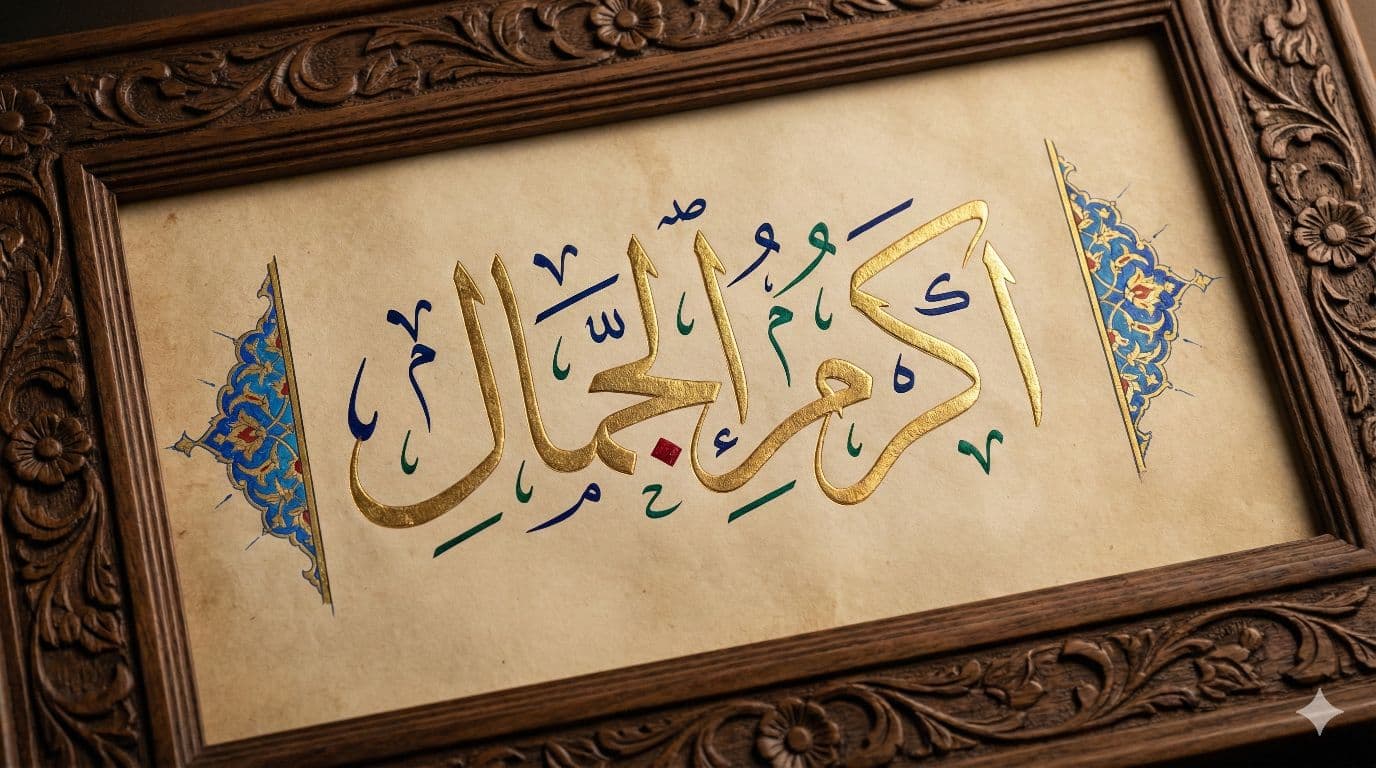 اكرم الجمال